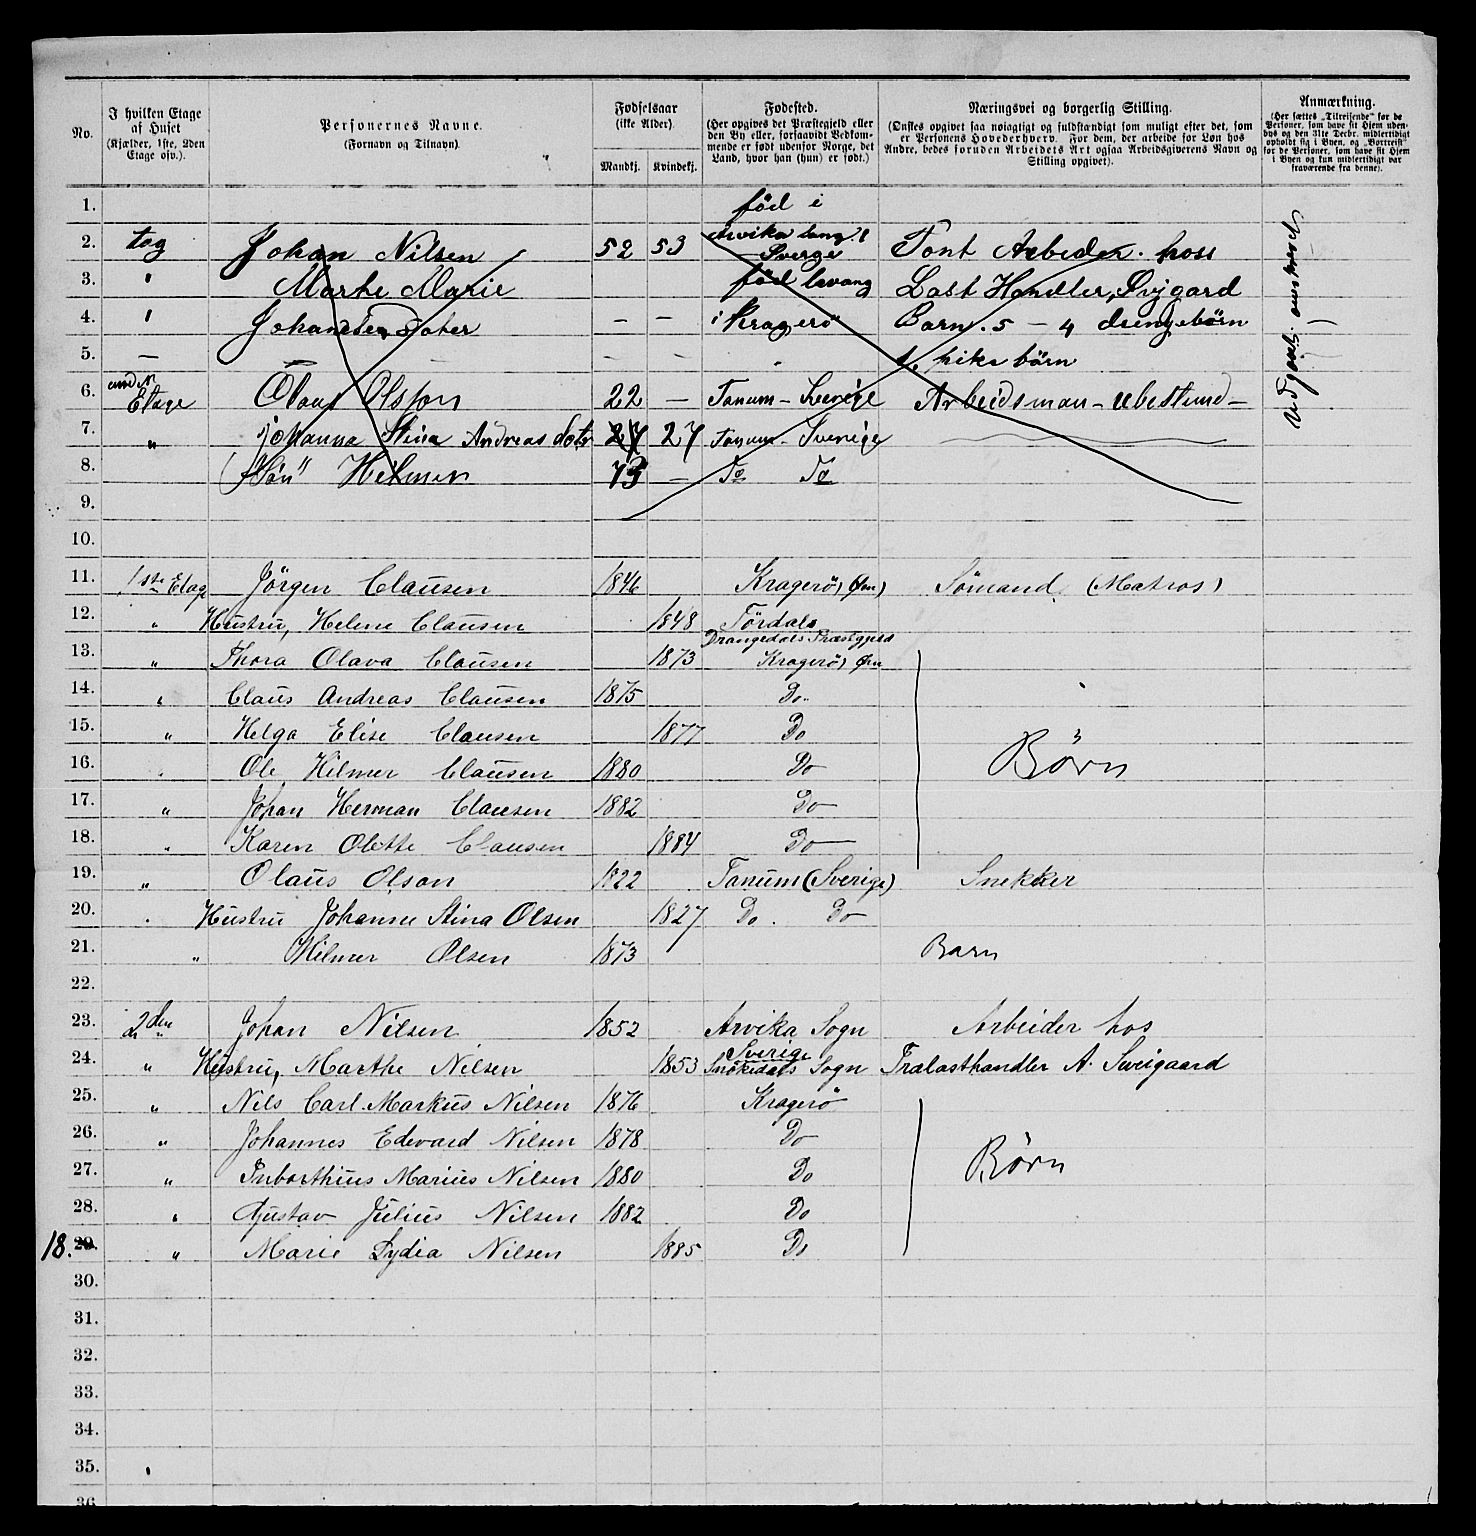 No.
I hvilken Etage af Huset (Kjælder, 1ste, 2den Etage osv.).
Personernes Navne. (Fornavn og Tilnavn).
Fødselsaar (ikke Alder). Mandkj. Kvindekj.
Fødested. (Her opgives det Præstegjeld eller den By eller, forsaavidt Vedkommende er født udenfor Norge, det Land, hvor han (hun) er født.)
Næringsvei og borgerlig Stilling. (Ønskes opgivet saa nøiagtigt og fuldstændigt som muligt efter det, som er Personens Hovederhverv. For dem, der arbeide for Løn hos Andre, bedes foruden Arbeidets Art ogsaa Arbeidsgiverens Navn og Stilling opgivet).
Anmærkning. (Her sættes „Tilreisende" for de Personer, som have sit Hjem udenbys og den 31te Decbr. midlertidigt opholdt sig i Byen, og „Bortreist" for de Personer, som have sit Hjem i Byen og kun midlertidigt var fraværende fra denne).
1. föd i
2. tag Johan Nilsen 52 53 Arvika Sverge Tont Arbeder. hoss
3. " Marhe Marie föd Last Handler, Svjgard
4. " Johannes Doter — — i Kragerö Barn. 5 — 4 drengebörn
5. — — — " 1. pike börn
6. Etage Olaus Olsson 22 — Tanum — Sverige Arbeidsman — Ubestund —
7. " Johanna Stina Andreas dotr 27 27 Tanum - Sverige
8. "Sön" Hilmer 73 — Do Do
9.
10.
11. 1ste Etage Jörgen Clausen 1846 Kragerö, Øen) Sömand (Matros)
12. " Hustru, Helene Clausen 1848 Tördals Drangedals Præstgjeld
13. " Thora Olava Clausen 1873 Kragerö, Øen
14. " Claus Andreas Clausen 1875 Do..
15. " Helga Elise Clausen 1877 Do
16. " Ole Hilmer Clausen 1880 Do Børn
17. " Johan Herman Clausen 1882 Do
18. " Karen Olette Clausen 1884 Do
19. " Olaus Olson 1822 Tanum (Sverige) Snekker
20. " Hustru Johanne Stina Olsen 1827 Do. Do
21. " Hilmer Olsen 1873 Barn
22.
23. 2den Johan Nilsen 1852 Arvika Sogn Sverige Arbeider hos
24. " Hustru, Marthe Nilsen 1853 Snökedals Sogn Trælasthandler A. Sweigaard
25. " Nils Carl Markus Nilsen 1876 Kragerö
26. " Johannes Edevard Nilsen 1878 Do
27. " Inborthius Marius Nilsen 1880 Do Børn
28. " Gustav Julius Nilsen 1882 Do
18. 29. " Marie Lydia Nilsen 1885 Do
30.
31.
32.
33.
34.
35.
36